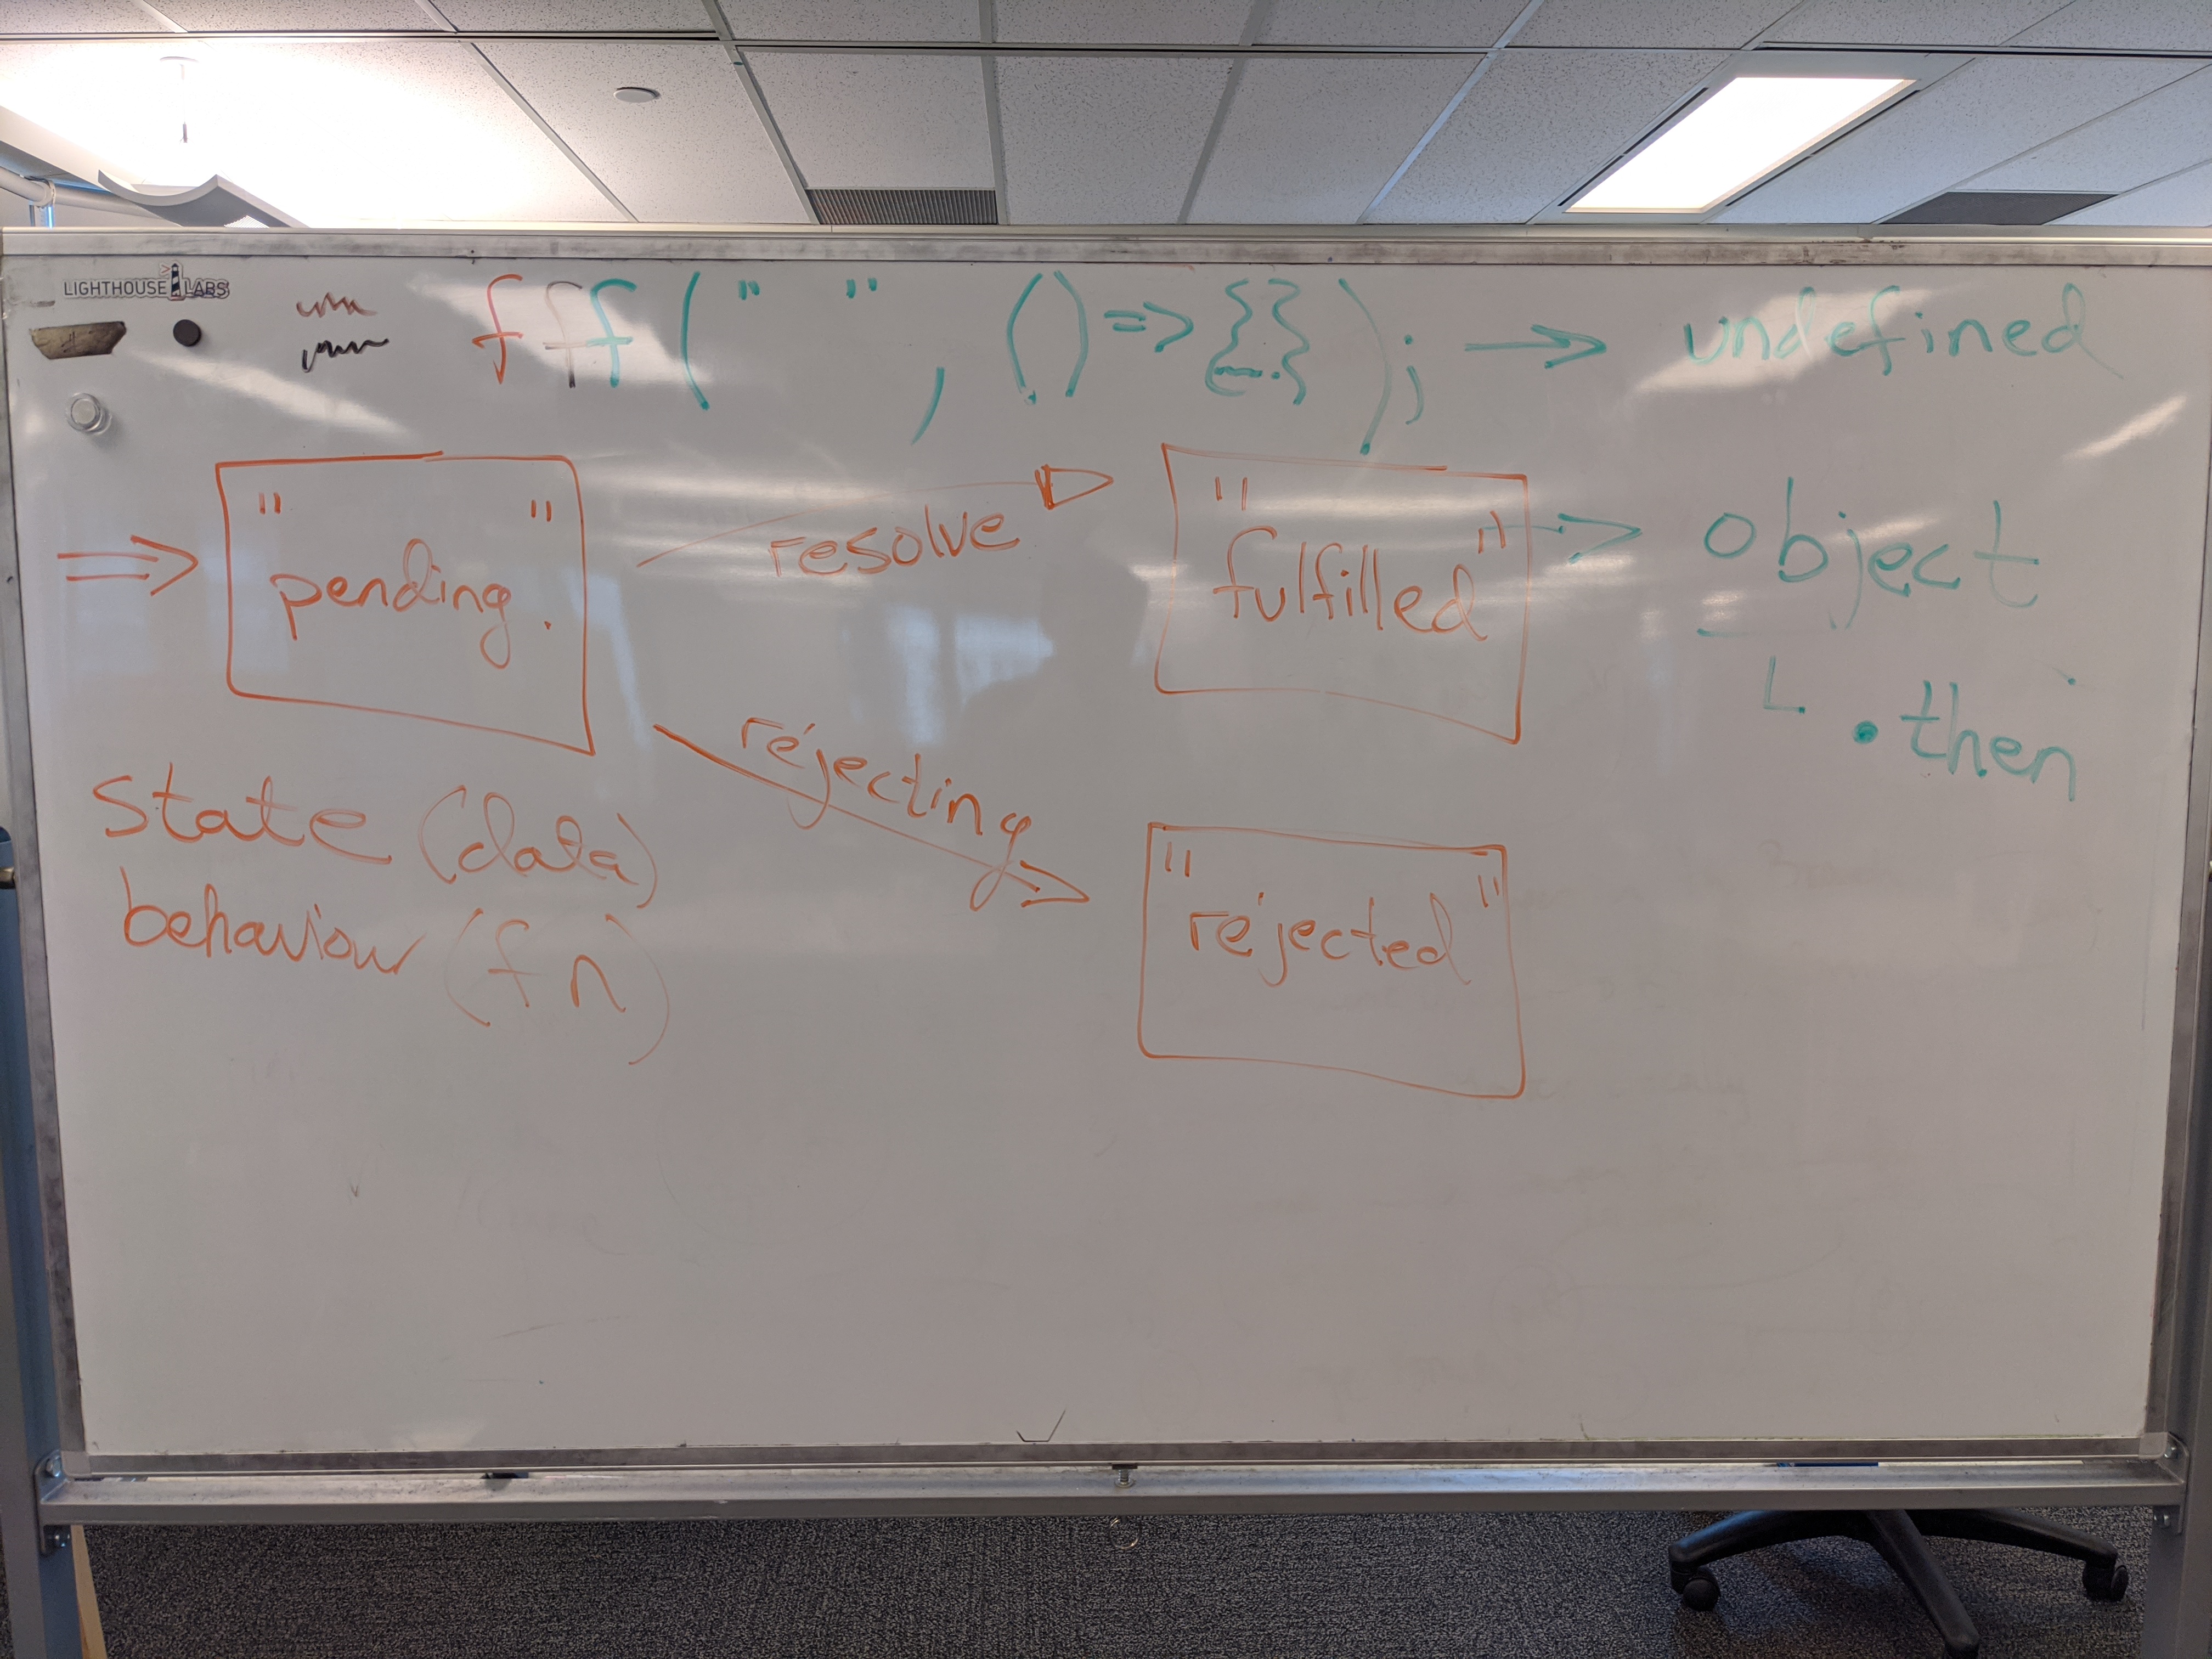 LIGHTHOUSE LABS
fff(" ", () => {}); → undefined
⇒ "pending."
resolve
"fulfilled" → object
.then
rejecting
state (data)
behaviour (fn)
"rejected"